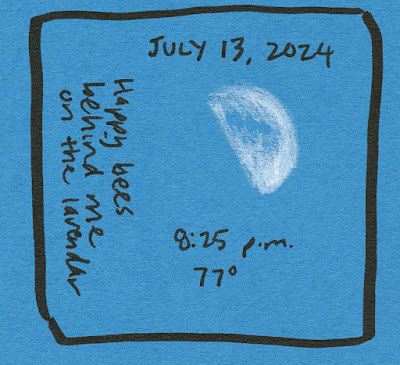 JULY 13, 2024
Happy bees
behind me
on the lavendar
8:25 p.m.
77°